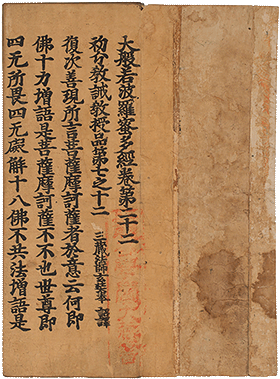 大般若波羅蜜多經卷第二十二
初分教誡教授品第七之十二
三藏法師玄奘奉 詔譯
復次善現所言菩薩摩訶薩者於意云何即
佛十力增語是菩薩摩訶薩不不也世尊即
四无所畏四无礙解十八佛不共法增語是